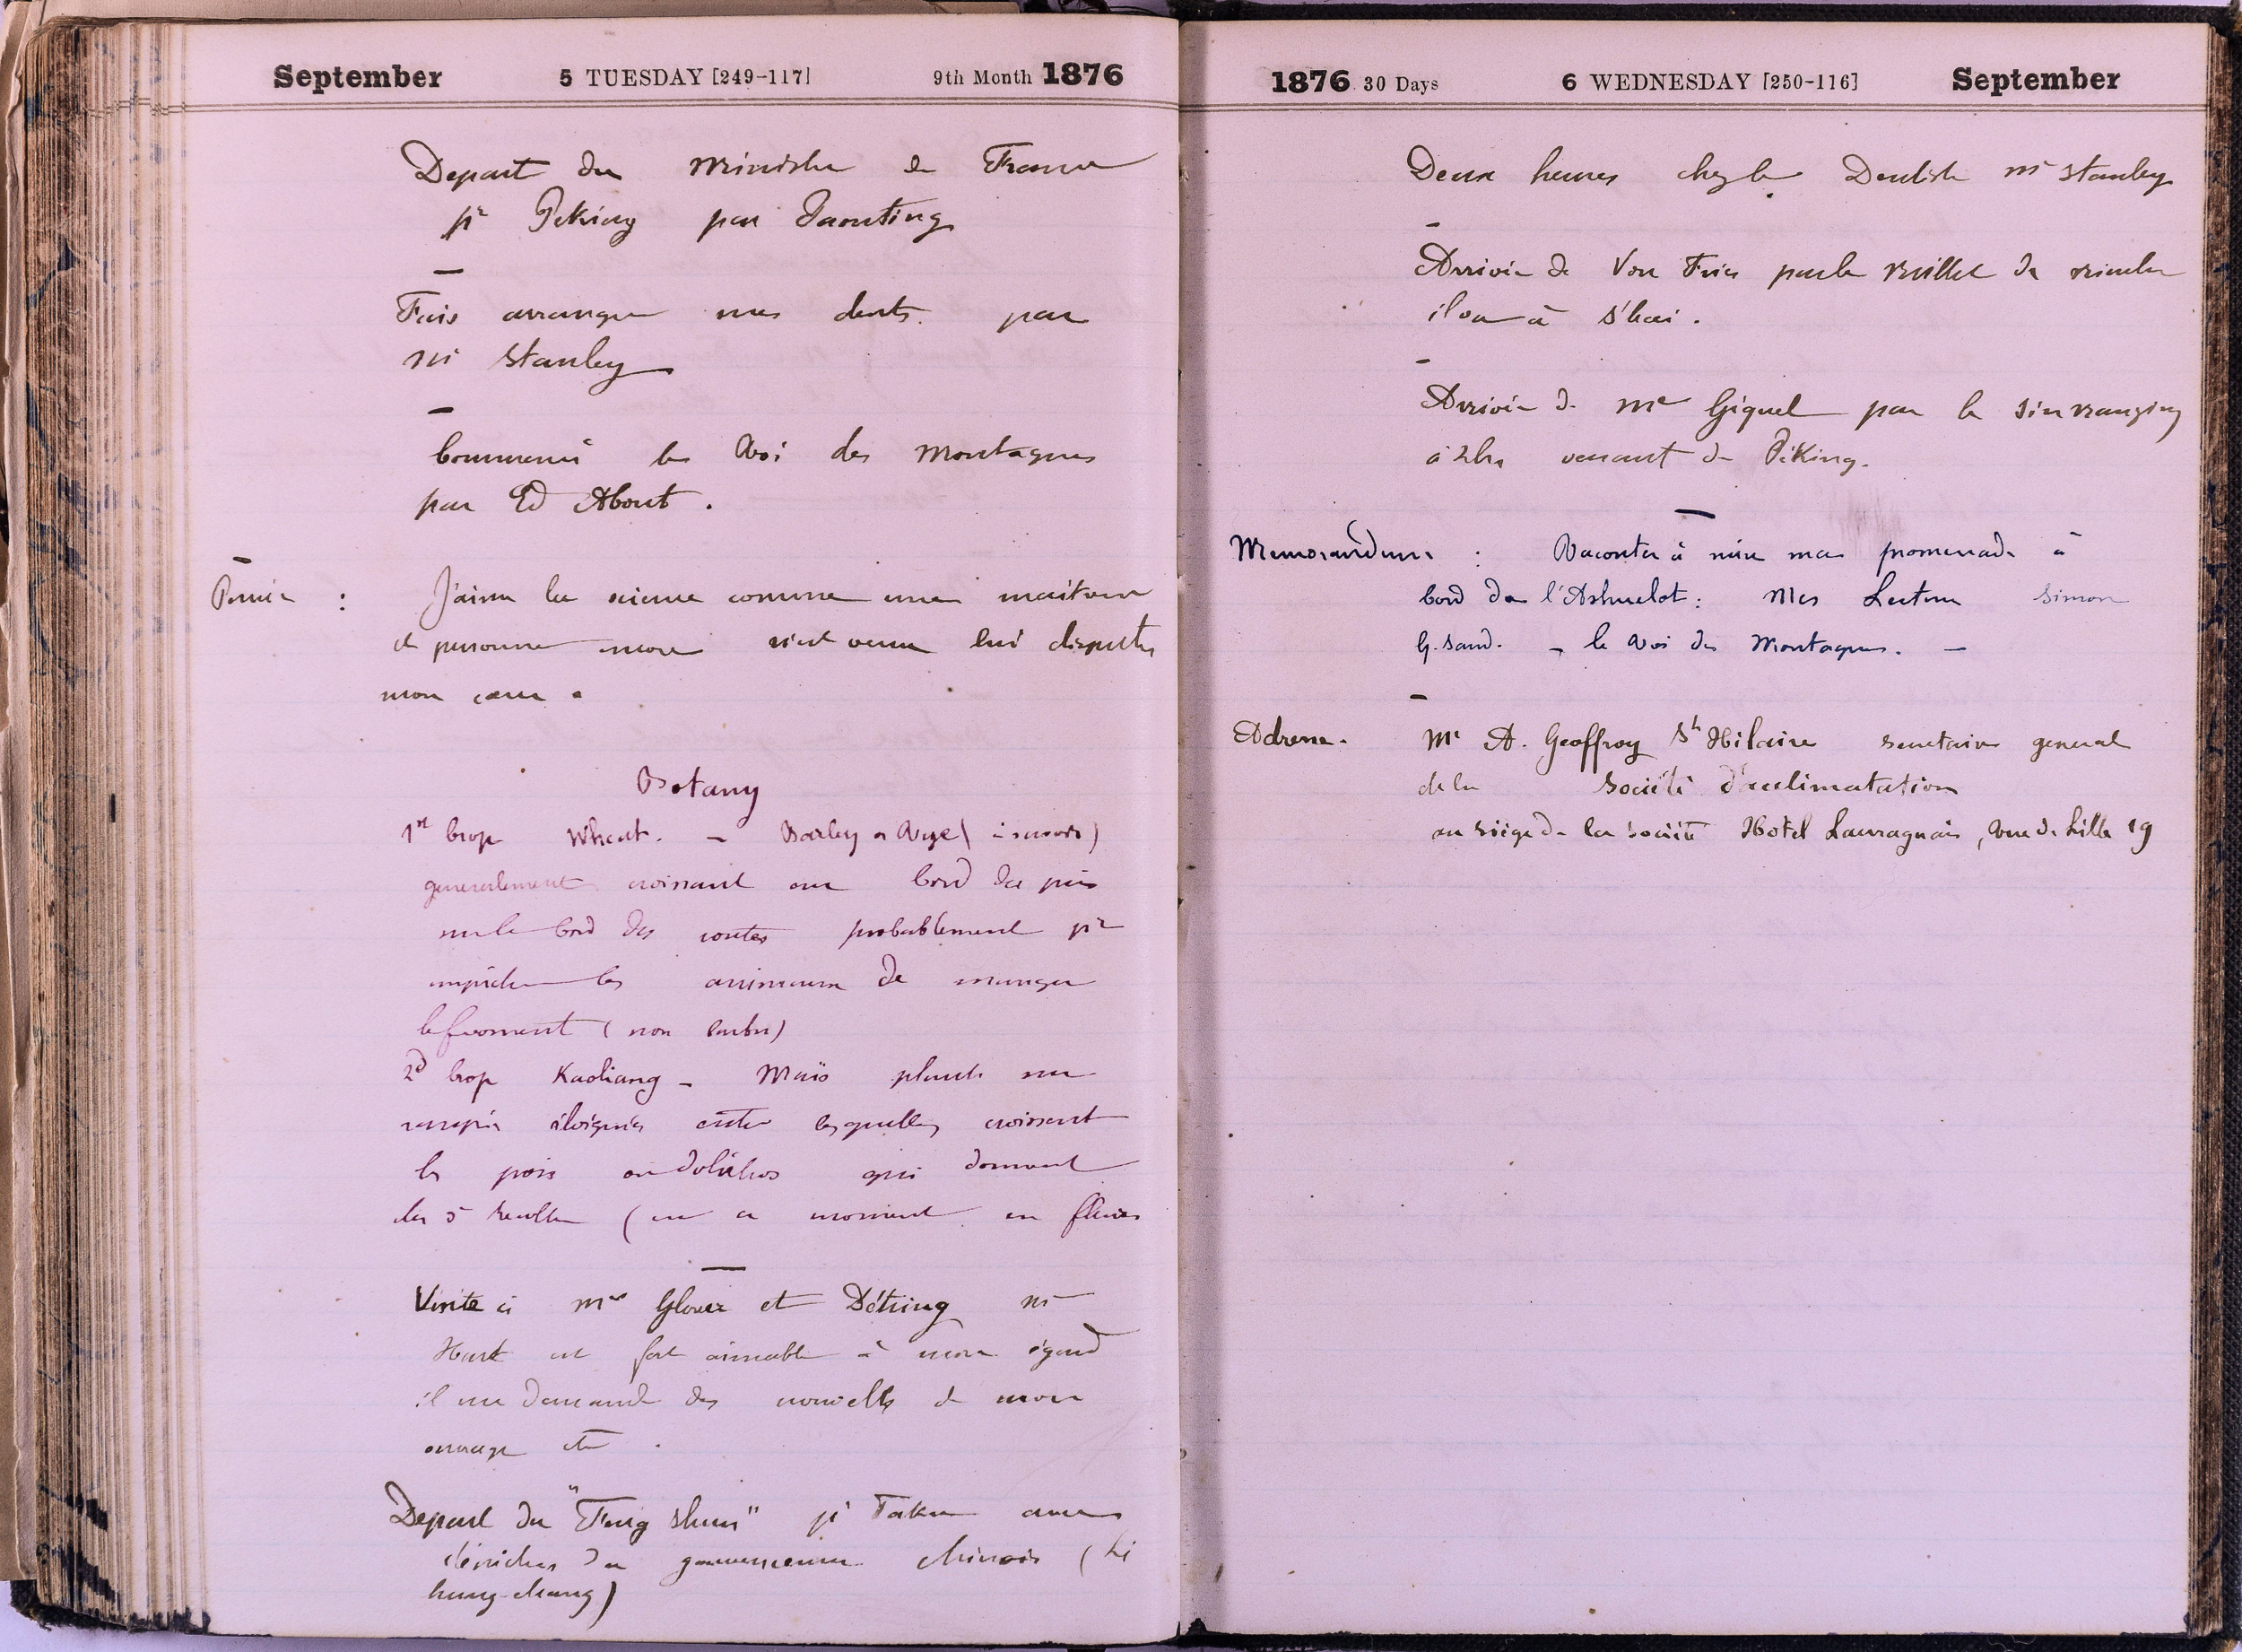 September 5 TUESDAY [249-117] 9th Month 1876
Depart du Ministre de France
pr Peking par Paouting
Fais arranger mes dents par
Mr Stanley
Commencé le Roi des Montagnes
par Ed About.
Pensée : J'aime la science comme une maitresse
et personne encore n'est venu lui disputer
mon cœur.
Botany
1st Crop Wheat. - Barley or Rye ( à savoir)
generalement croissant au bord du puis
sur le bord des routes probablement pr
empêcher les animaux de manger
le froment ( non barbu)
2d Crop Kaoliang - Maïs plantés sur
rangées éloignées entre lesquelles croissent
les pois ou dolichos qui donnent
la 3e recolte ( en ce moment en fleurs
Visite à Mrs Glover et Détring Mr
Hart est fort aimable à mon égard
il me demande des nouvelles de mon
ouvrage etc.
Depart du "Fung Shun" pr Takou avec
dépêches du gouvernement chinois ( Li
hung-chang)
1876 30 Days 6 WEDNESDAY [250-116] September
Deux heures chez le Dentiste Mr Stanley
Arrivée de Von Fries par le Millet de
il va à S'hai.
Arrivée de Mr Giquel par le Sin Nanzing
à 2hrs venant de Péking.
Memorandum : Raconter à mère ma promenade à
bord de l'Ashuelot : Mes Lectures Simon
G. Sand. - le Roi des Montagnes. -
Adresse. Mr A. Geoffroy St Hilaire secretaire general
de la Société d'acclimatation
au siège de la société Hotel Lauraguais, rue de Lille 19